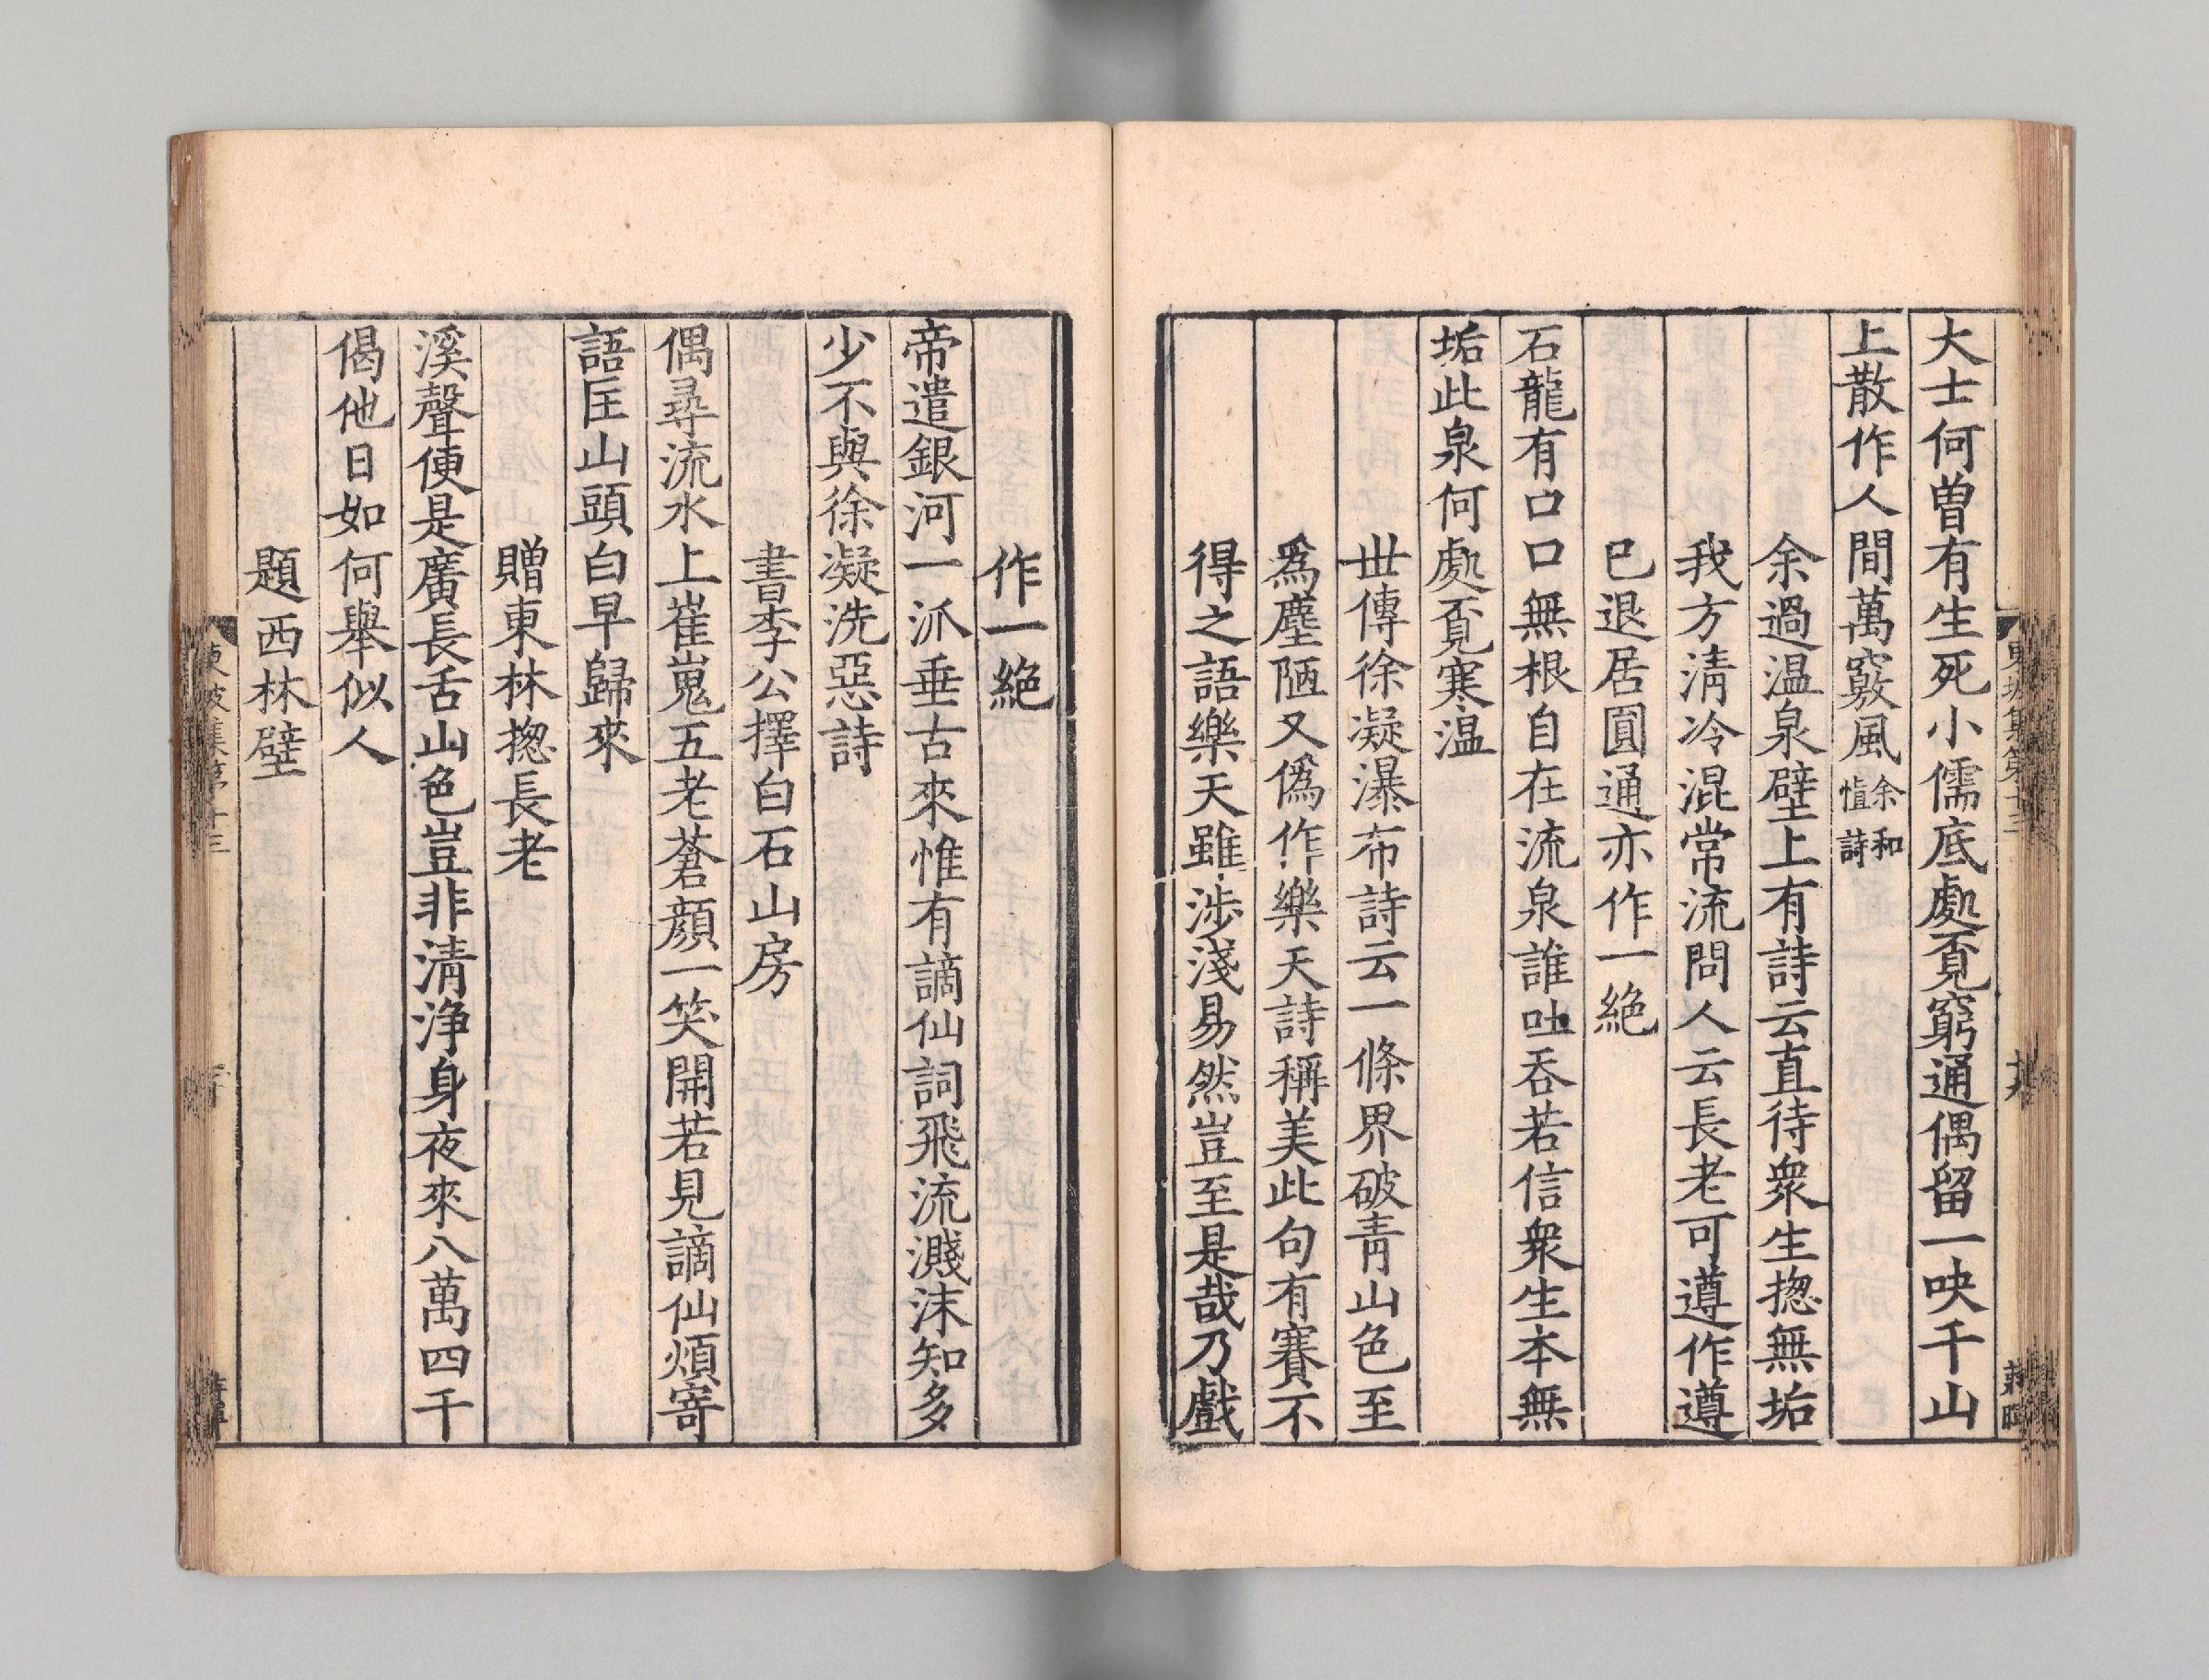 大士何曽有生死小儒底處覔窮通偶留一吷千山
上散作人間萬竅風余和愼詩
余過温泉壁上有詩云直待衆生揔無垢
我方清冷混常流問人云長老可遵作遵
已退居圓通亦作一絶
石龍有口口無根自在流泉誰吐吞若信衆生本無
垢此泉何處覔寒温
世傳徐凝瀑布詩云一條界破青山色至
爲塵陋又僞作樂天詩稱美此句有賽不
得之語樂天雖涉淺易然豈至是哉乃戲
作一絶
帝遣銀河一派垂古來惟有謫仙詞飛流濺沫知多
少不與徐凝洗惡詩
書李公擇白石山房
偶尋流水上崔嵬五老蒼顔一笑開若見謫仙煩寄
語匡山頭白早歸來
贈東林揔長老
溪聲便是廣長舌山色豈非清淨身夜來八萬四千
偈他日如何舉似人
題西林壁
東坡集第十三